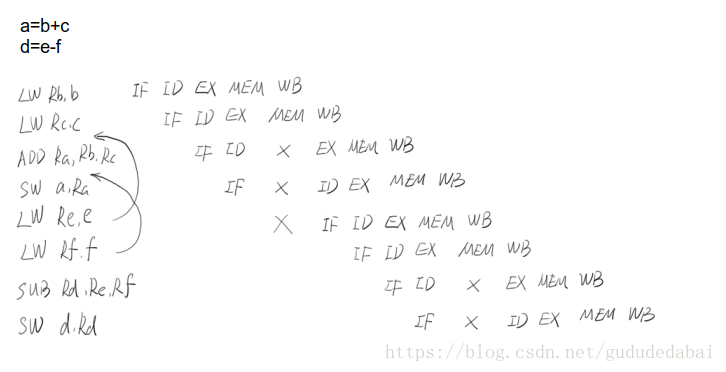 a=b+c
d=e-f
LW Rb,b IF ID EX MEM WB
LW Rc,c IF ID EX MEM WB
ADD Ra,Rb,Rc IF ID X EX MEM WB
SW a,Ra IF X ID EX MEM WB
LW Re,e X IF ID EX MEM WB
LW Rf,f IF ID EX MEM WB
SUB Rd,Re,Rf IF ID X EX MEM WB
SW d,Rd IF X ID EX MEM WB
https://blog.csdn.net/gududedabai